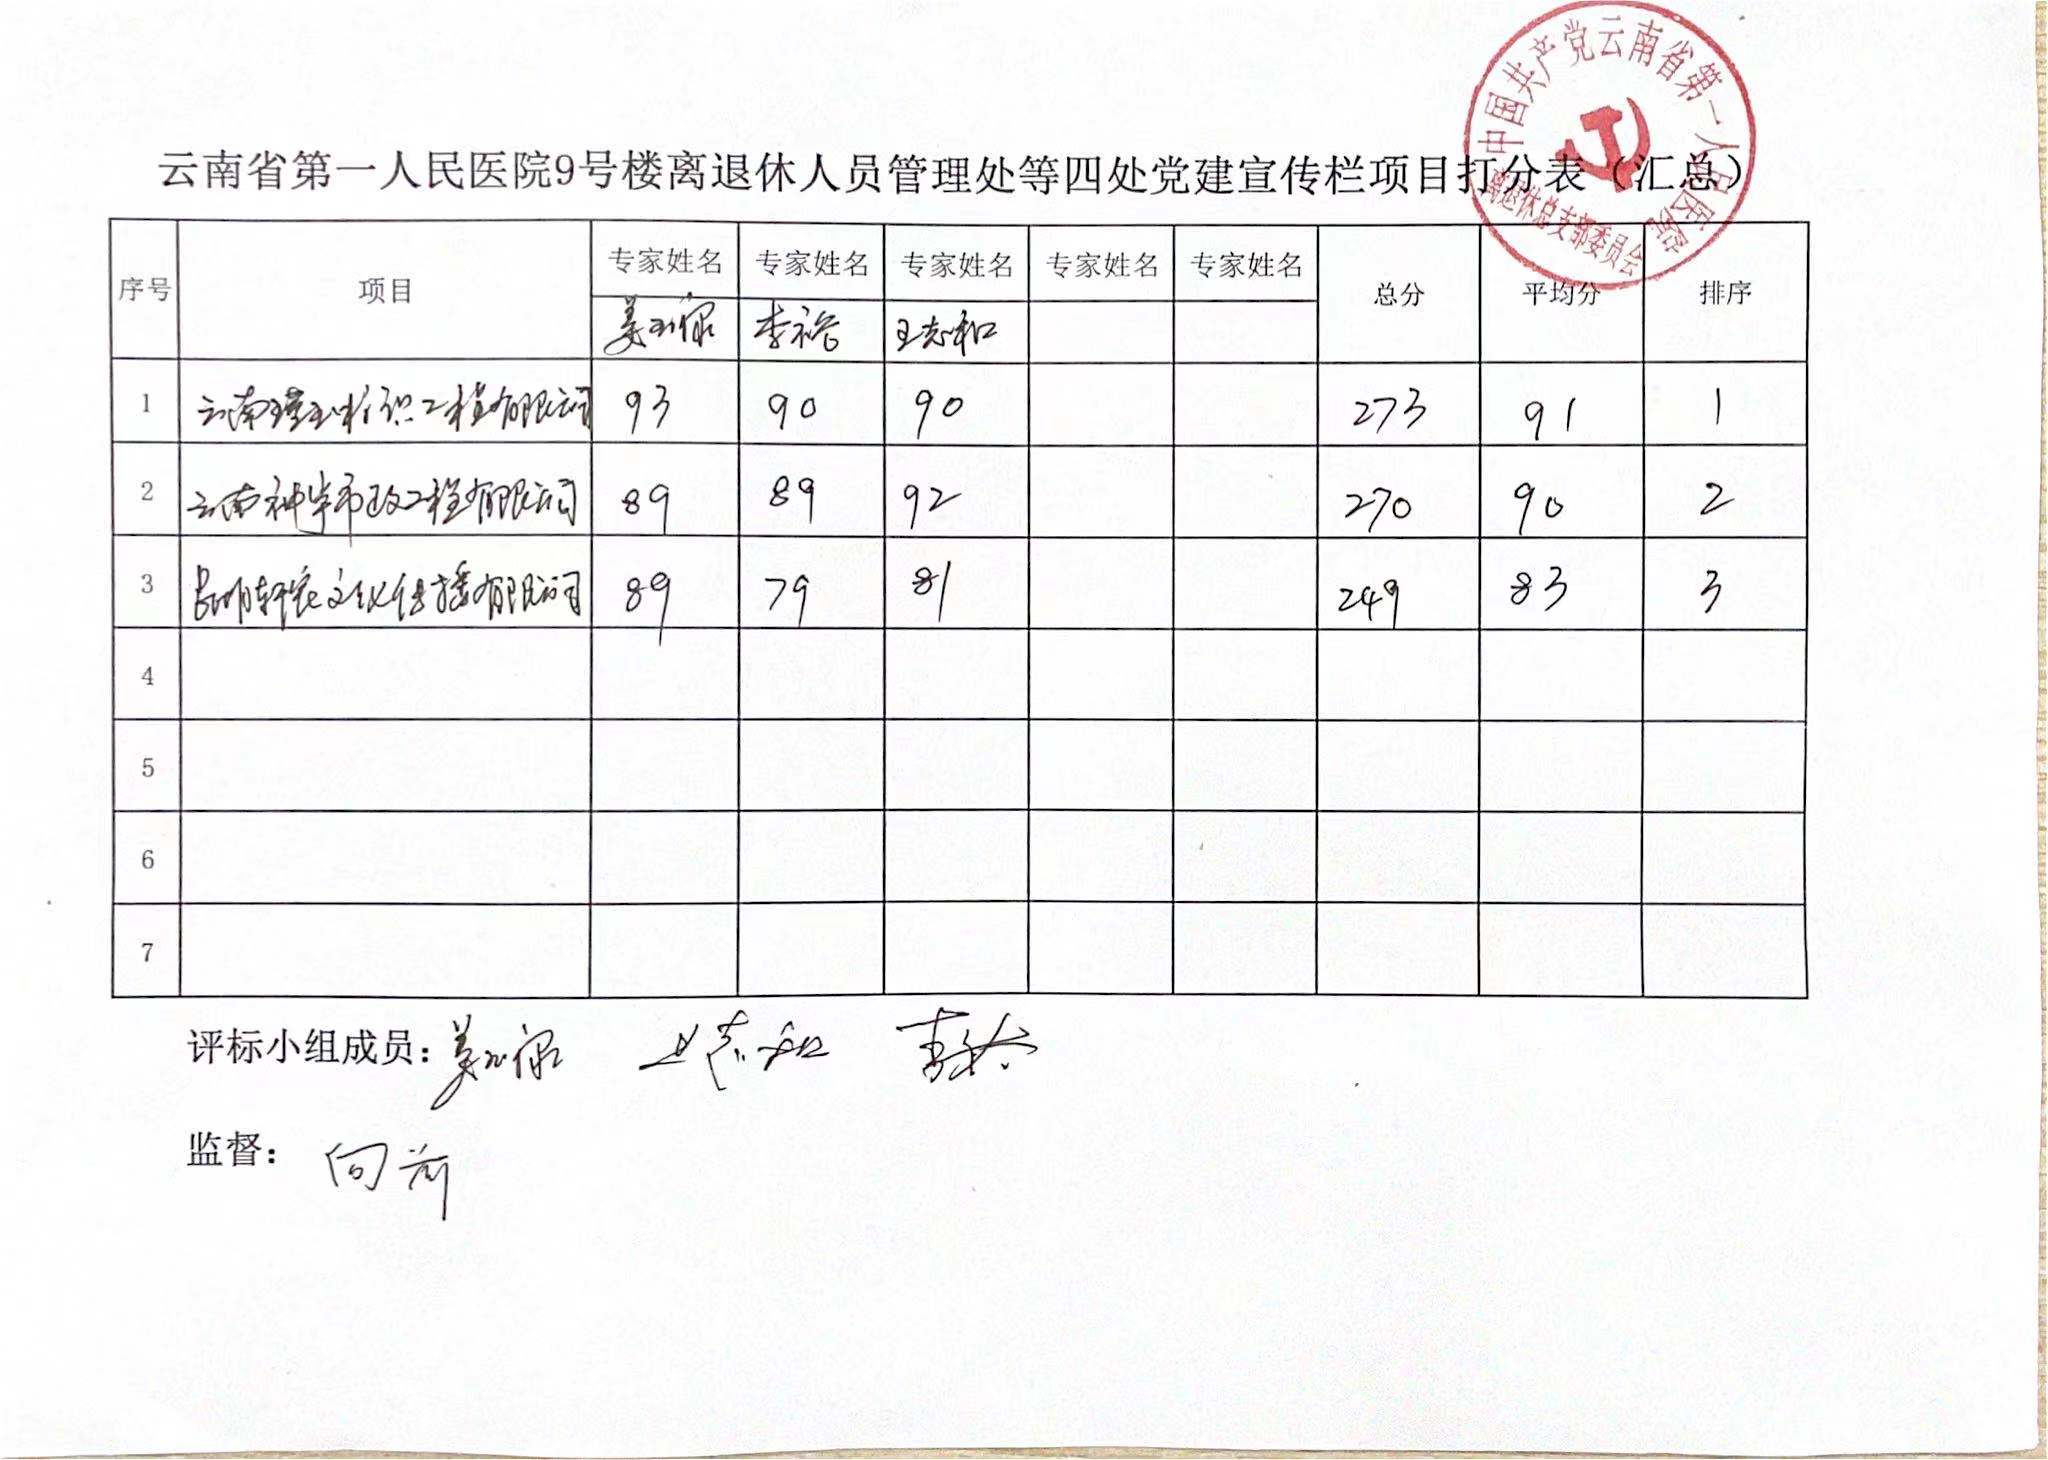 中国共产党云南省第一人民医院
离退休总支部委员会
云南省第一人民医院9号楼离退休人员管理处等四处党建宣传栏项目打分表（汇总）
序号 项目 专家姓名 专家姓名 专家姓名 专家姓名 专家姓名 总分 平均分 排序
李裕 王志和
1 云南瑾玉标识工程有限公司 93 90 90 273 91 1
2 云南神宇市政工程有限公司 89 89 92 270 90 2
3 昆明轩宏文化传播有限公司 89 79 81 249 83 3
4
5
6
7
评标小组成员： 王志和 李裕
监督： 向前